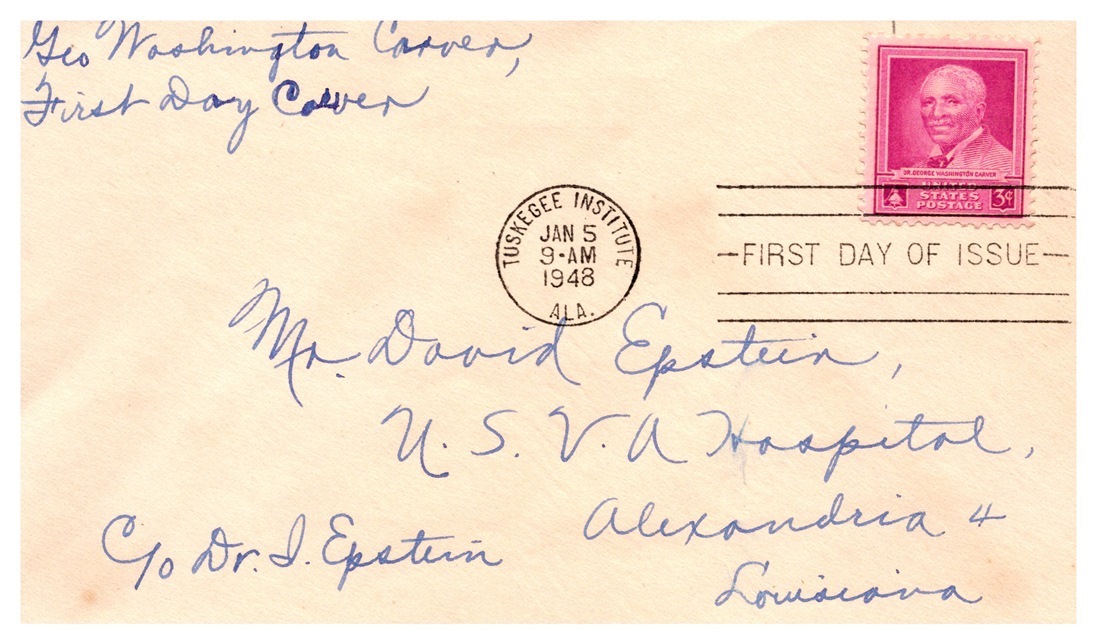 Geo Washington Carver,
First Day Cover
DR. GEORGE WASHINGTON CARVER
UNITED
STATES
POSTAGE
3¢
TUSKEGEE INSTITUTE
JAN 5
9-AM
1948
ALA.
FIRST DAY OF ISSUE
Mr. David Epstein,
U. S. V. A Hospital,
Alexandria 4
Louisiana
C/o Dr. I. Epstein